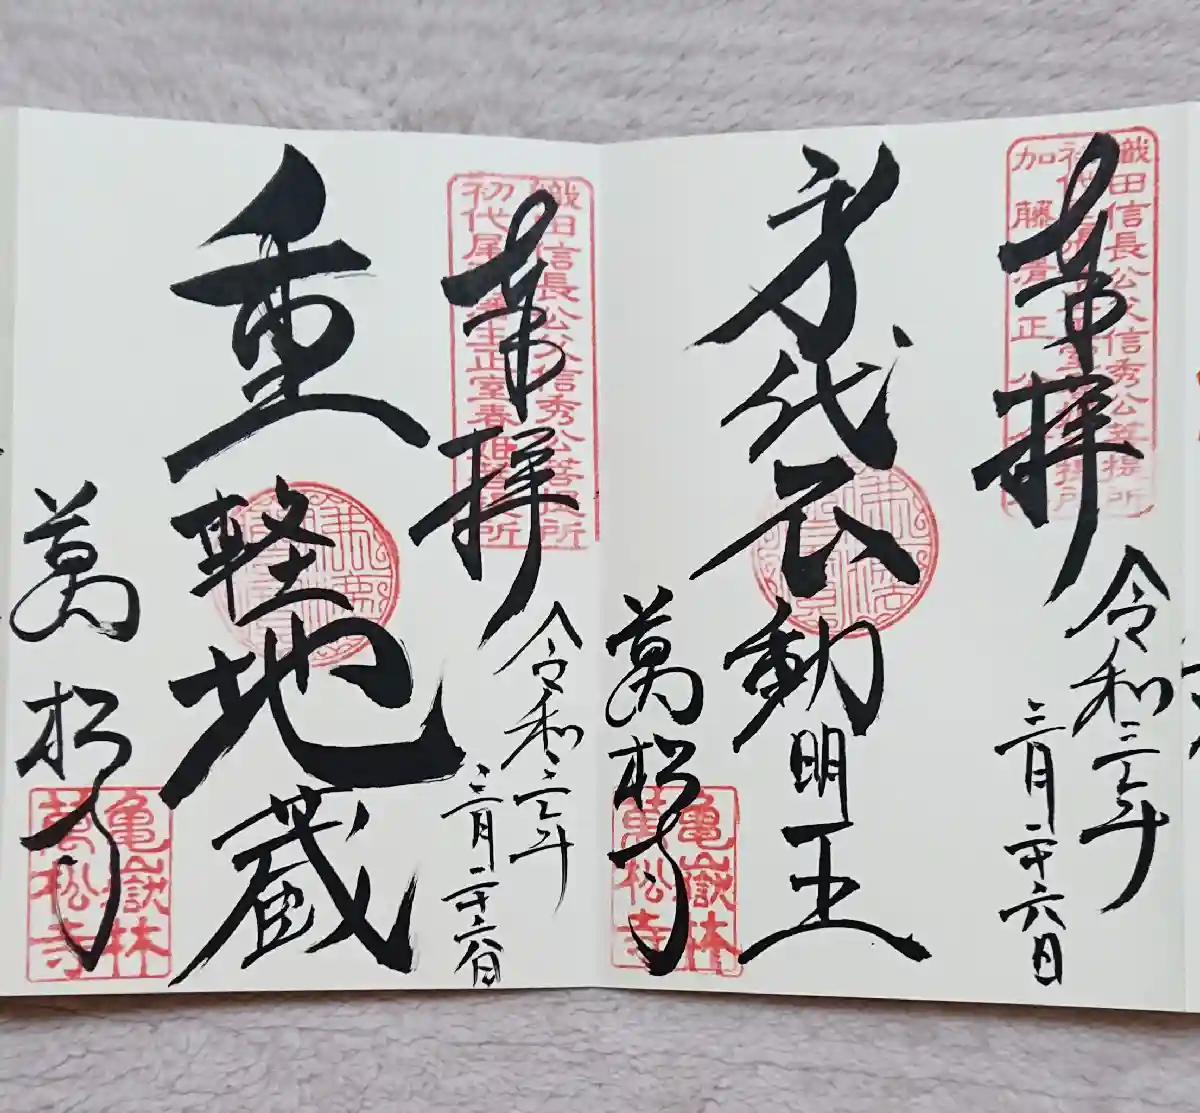 織田信長公父信秀公菩提所
加藤清正
奉拝
令和三年
三月二十六日
身代不動明王
萬松寺
亀嶽林
萬松寺
織田信長公父信秀公菩提所
初代尾張藩主正室春姫菩提所
奉拝
令和三年
三月二十六日
重軽地蔵
萬松寺
亀嶽林
萬松寺